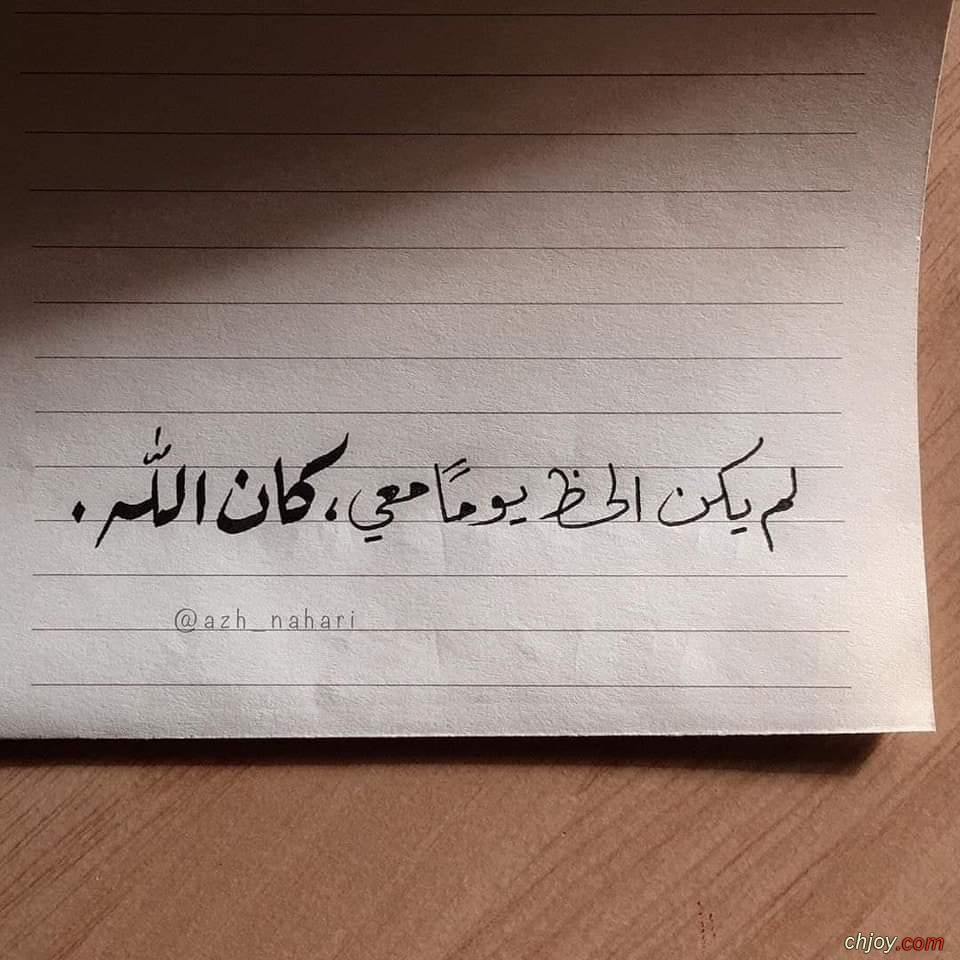 لم يكن الحظ يومًا معي، كان اللّٰه .
@azh_nahari
chjoy.com